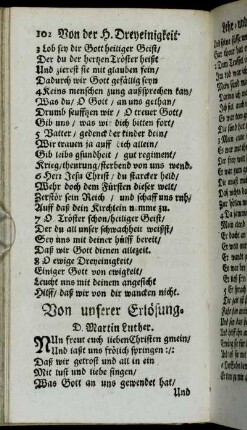 102 Von der H. Dreyeinigkeit
3 Lob sey dir Gott heiliger Geist/
Der du der hertzen Tröster heist
Und zierest sie mit glauben fein/
Dadurch wir Gott gefällig seyn
4 Keins menschen zung aussprechen kan/
Was du/ O Gott/ an uns gethan/
Drumb seufftzen wir/ O treuer Gott/
Gib uns/ was wir dich bitten fort/
5 Vatter/ gedenck der kinder dein/
Wir trauen ja auff dich allein/
Gib liebs gsundheit/ gut regiment/
Krieg/theurung/sterben von uns wend.
6 Herr Jesu Christ/ du starcker held/
Wehr doch dem Fürsten dieser welt/
Zerstör sein Reich/ und schaff uns ruh/
Auff daß dein Kirchlein nemme zu.
7 O Tröster schon/heiliger Geist/
Der du all unser schwachheit weißst/
Sey uns mit deiner hülff bereit/
Daß wir Gott dienen allezeit.
8 O ewige Dreyeinigkeit/
Einiger Gott von ewigkeit/
Leucht uns mit deinem angesicht
Hilff/ daß wir von dir wancken nicht.
Von unserer Erlösung.
D. Martin Luther.
NUn freut euch lieben Christen gmein/
Und laßt uns frölich springen :/:
Daß wir getrost und all in ein
Mit lust und liebe singen/
Was Gott an uns gewendet hat/
Und